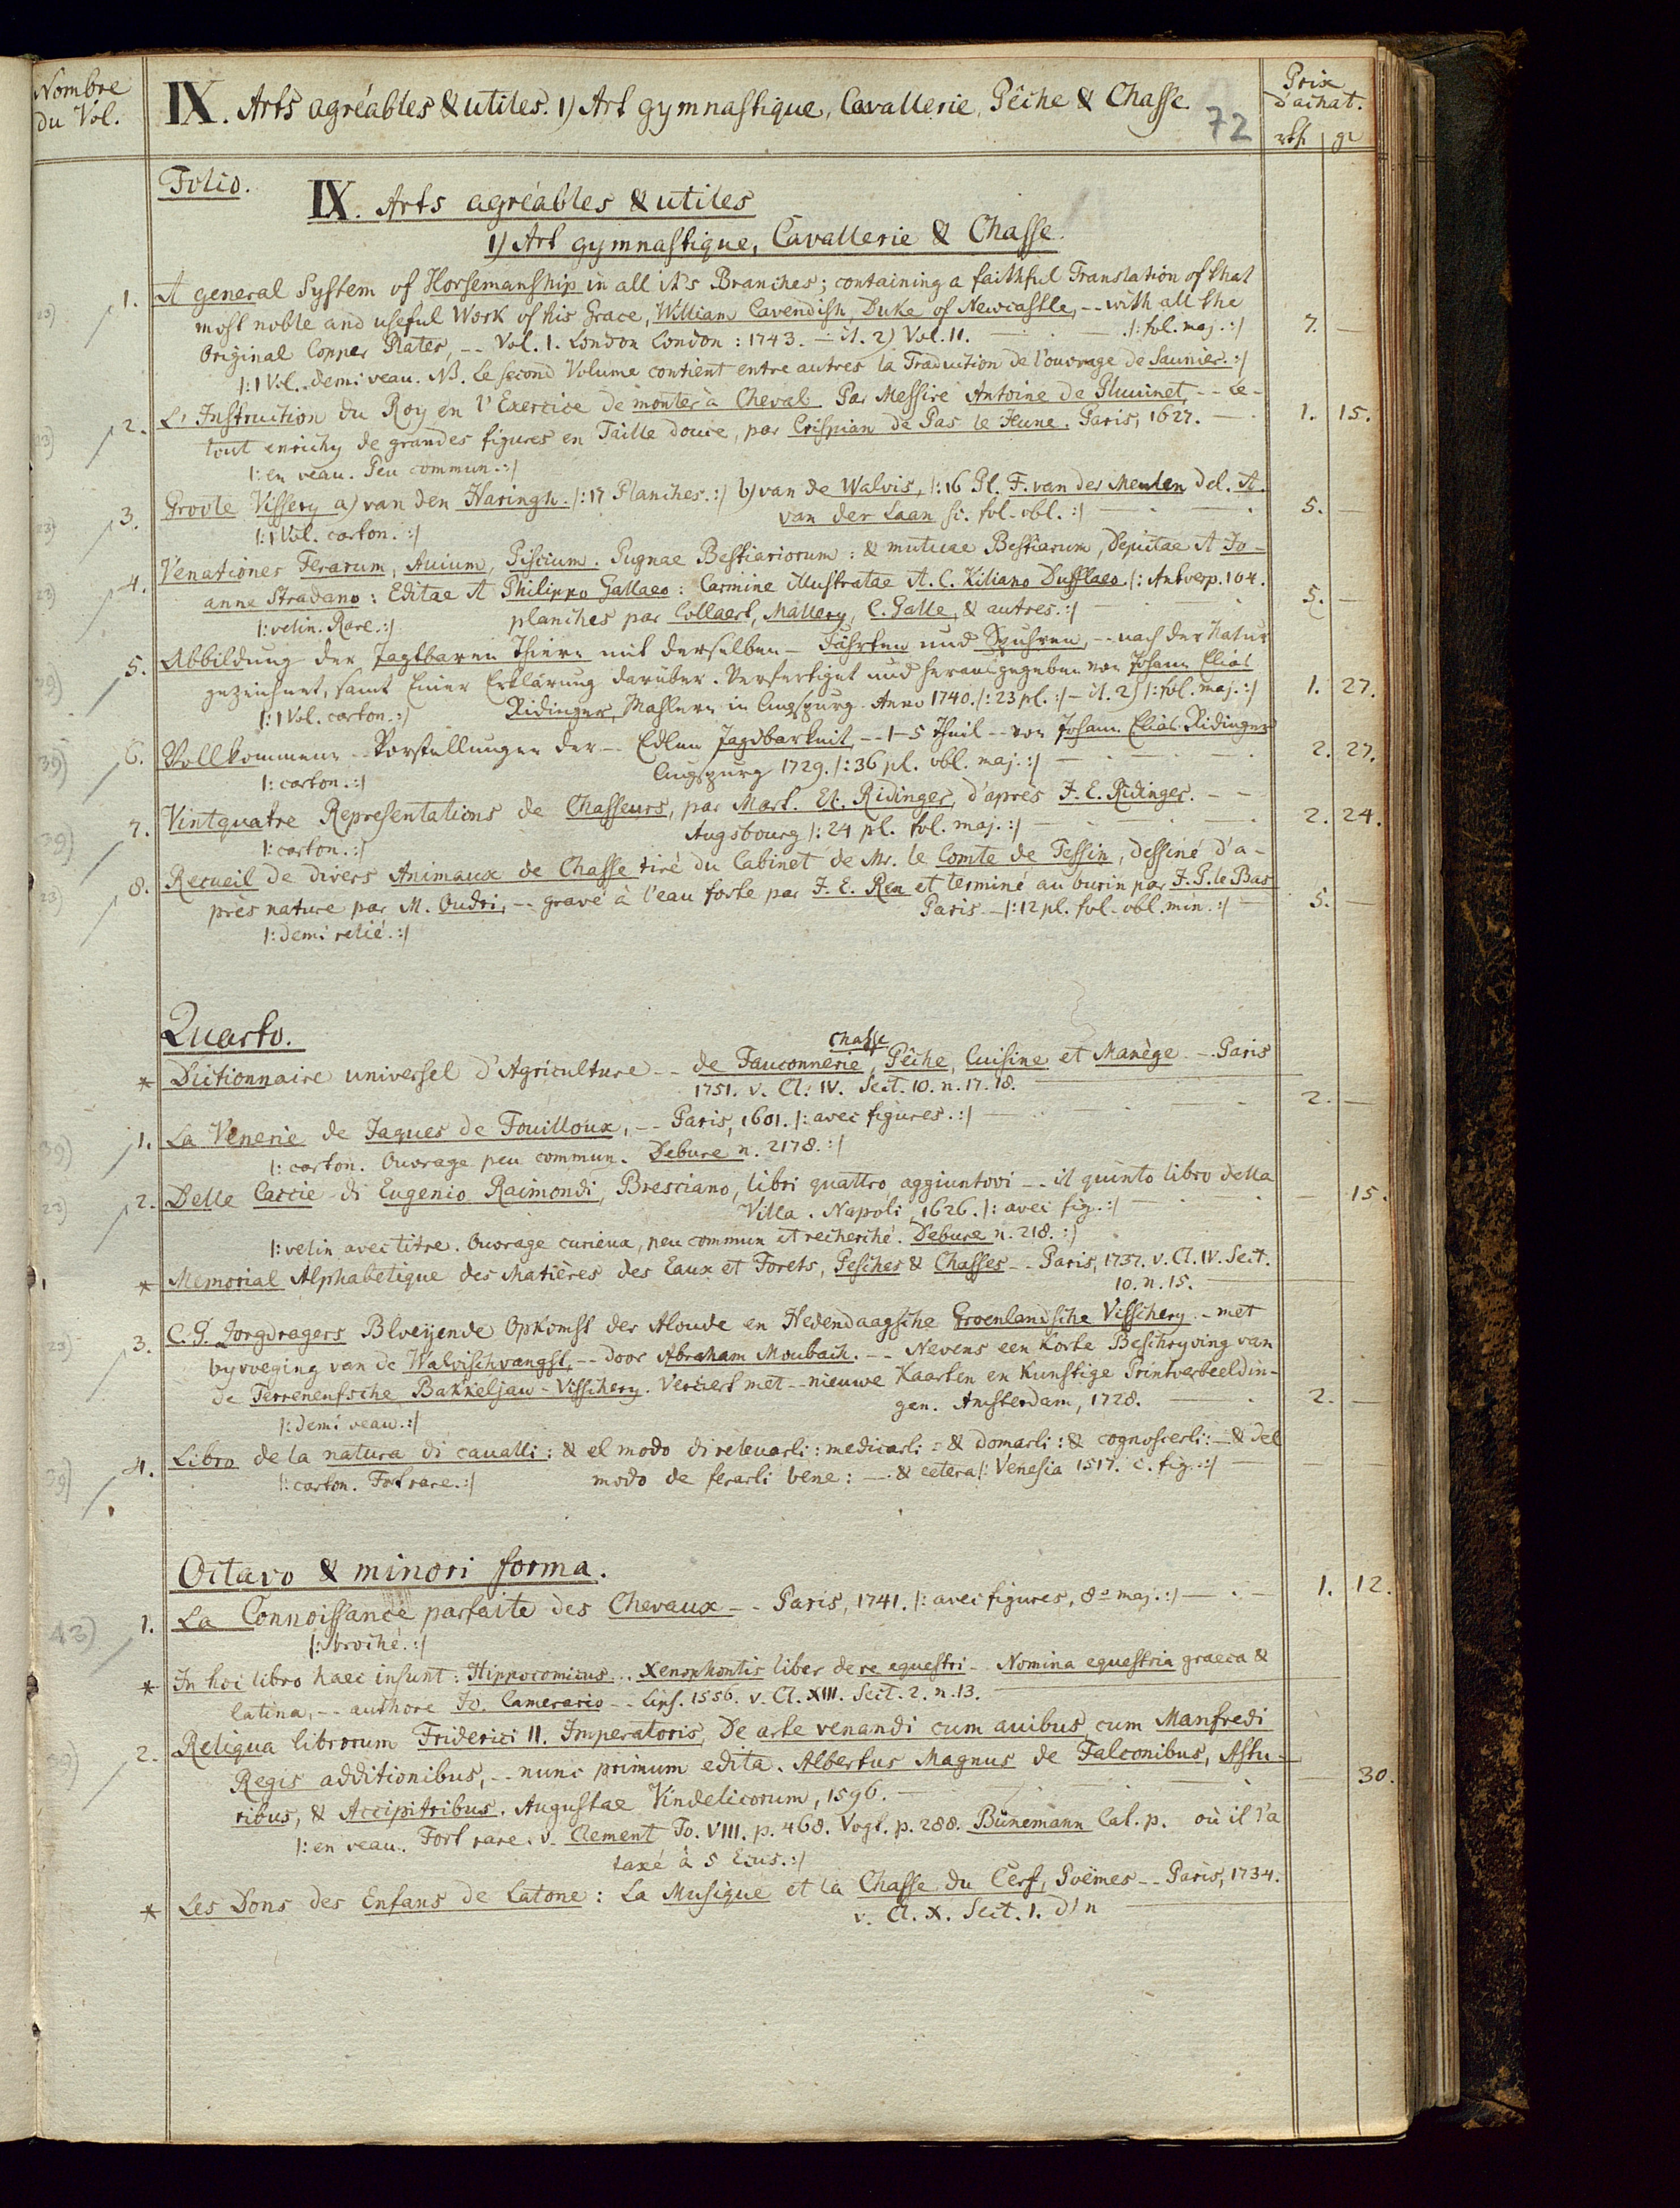 Nombre
du Vol.
IX. Arts agréables & utiles. 1) Art gymnastique, Cavallerie, Pêche & Chasse.
72
Prix
d'achat.
rth. gr
Folio.
IX. Arts agréables & utiles
1) Art gymnastique, Cavallerie & Chasse.
1. A general System of Horsemanship in all it's Branches; containing a faithful Translation of that
most noble and useful Work of his Grace, William Cavendish, Duke of Newcastle, -- with all the
Original Copper Plates, -- Vol. 1. London London : 1743. - it. 2) Vol. II. |: fol. maj. :| 7. —
|: 1 Vol. demi veau. NB. Le second Volume contient entre autres la Traduction de l'ouvrage de Saunier. :|
2. L'Instruction du Roy en l'Exercice de monter à Cheval Par Messire Antoine de Pluuinet, -- Le-
tout enrichy de grandes figures en Taille douce, par Crispian de Pas le Jeune. Paris, 1627. — 1. 15.
|: en veau. Peu commun. :|
3. Groote Vissery a) van den Haringh. |: 17 Planches. :| b) van de Walvis, |: 16 Pl. F. van der Meulen del. A.
van der Laan sc. fol. obl. :| — 5. —
|: 1 Vol. carton. :|
4. Venationes Ferarum, Auium, Piscium. Pugnae Bestiariorum : & mutuae Bestiarum, Depictae A Jo-
anne Stradano : Editae A Philippo Gallaeo : Carmine illustratae A. C. Kiliano Dufflaeo |: Antverp. 104.
planches par Collaert, Mallery, C. Galle, & autres. :| — 5. —
|: velin. Rare. :|
5. Abbildung der Jagtbaren Thiere mit derselben - Fährten und Spuhren, -- nach der Natur
gezeichnet, samt Einer Erklärung darüber. Verfertiget und herausgegeben von Johann Elias
Ridinger, Mahlern in Augspurg Anno 1740. |: 23 pl. :| - it. 2) |: fol. maj. :| 1. 27.
|: 1 Vol. carton. :|
6. Vollkommene -- Vorstellungen der -- Edlen Jagdbarkeit, -- 1-5 Theil -- von Johann Elias Ridinger
Augspurg 1729. |: 36 pl. obl. maj. :| — 2. 27.
|: carton. :|
7. Vintquatre Representations de Chasseurs, par Mart. El. Ridinger, d'après J. E. Ridinger. --
Augsbourg |: 24 pl. fol. maj. :| — 2. 24.
|: carton. :|
8. Recueil de divers Animaux de Chasse tiré du Cabinet de Mr. le Comte de Tessin, dessiné d'a-
près nature par M. Oudri, -- gravé à l'eau forte par J. E. Ren et terminé au burin par J. P. le Bas
Paris - |: 12 pl. fol. obl. min. :| — 5. —
|: demi relié. :|
Quarto.
* Dictionnaire universel d'Agriculture -- de Fauconnerie, Chasse Pêche, Cuisine et Manège -- Paris
1751. v. Cl. IV. Sect. 10. n. 17. 18.
1. La Venerie de Jaques de Fouilloux, -- Paris, 1601. |: avec figures. :| — 2. —
|: carton. Ouvrage peu commun. Debure n. 2178. :|
2. Delle Caccie di Eugenio Raimondi, Bresciano, libri quattro, aggiuntovi -- il quinto libro della
Villa. Napoli, 1626. |: avec fig. :| — 15.
|: velin avec titre. Ouvrage curieux, peu commun et recherché. Debure n. 218. :|
* Memorial Alphabetique des Matières des Eaux et Forets, Pesches & Chasses -- Paris, 1737. v. Cl. IV. Sect.
10. n. 15.
3. C. G. Zorgdragers Bloeyende Opkomst der Aloude en Hedendaagsche Groenlandsche Visschery -- met
byvoeging van de Walvischvangst, -- door Abraham Moubach. -- Nevens een korte Beschryving van
de Terreneufsche Bakkeljaw-Visschery. Verciert met -- nieuwe Kaarten en Kunstige Printverbeeldin-
gen. Amsterdam, 1728. — 2. —
|: demi veau. :|
4. Libro de la natura di cauatti : & el modo di releuarli : medicarli : & domarli : & cognoscerli : - & del
modo de ferarli bene : -- & cetera |: Venesia 1517. c. fig. :| —
|: carton. Fort rare. :|
Octavo & minori forma.
1. La Connoissance parfaite des Chevaux -- Paris, 1741. |: avec figures, 8° maj. :| — 1. 12.
|: broché. :|
* In hoc libro haec insunt : Hippocomicus... Xenophontis liber de re equestri -- Nomina equestria graeca &
latina, -- authore Jo. Camerario -- Lips. 1556. v. Cl. XIII. Sect. 2. n. 13.
2. Reliqua librorum Friderici II. Imperatoris, De arte venandi cum auibus, cum Manfredi
Regis additionibus, -- nunc primum edita. Albertus Magnus de Falconibus, Astu-
ribus, & Accipitribus. Augustae Vindelicorum, 1596. — 30.
|: en veau. Fort rare. v. Clement To. VIII. p. 468. Vogt. p. 288. Bünemann Cat. p. où il l'a
taxé à 5 Ecus. :|
* Les Dons des Enfans de Latone : La Musique et la Chasse du Cerf, Poëmes -- Paris, 1734.
v. Cl. X. Sect. 1. d) n